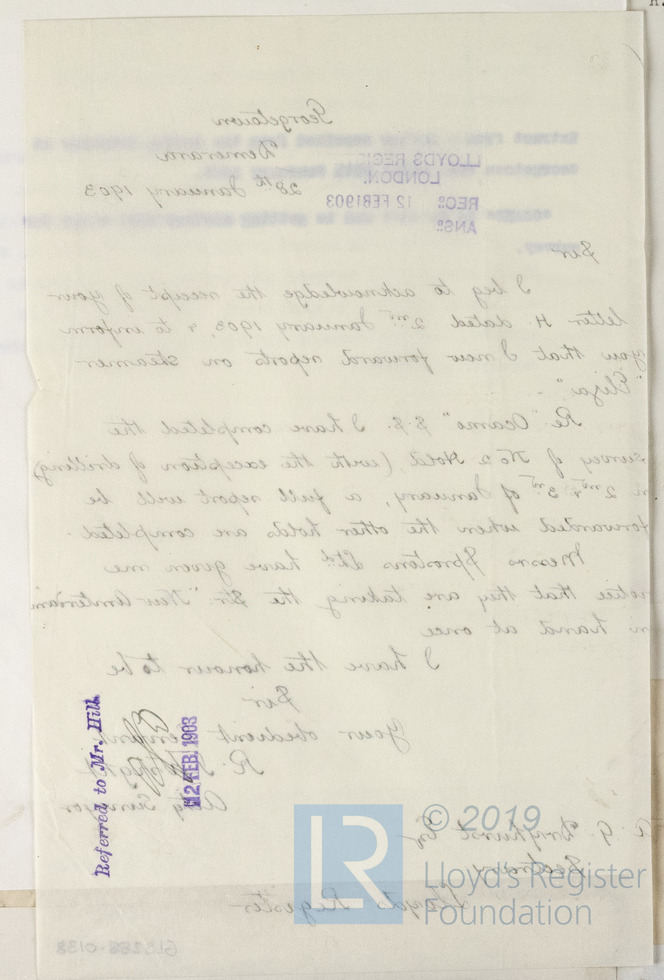 Georgetown
Demerara
28th January 1903
LLOYDS REGIS
LONDON.
RECD 12 FEB 1903
ANSD
Sir
I beg to acknowledge the receipt of your
letter H. dated 2nd January 1903, & to inform
you that I now forward reports on steamer
"Eliza" -
Re "Ocamo" S.S. I have completed the
survey of No 2 Hold, (with the exception of drilling)
n 2nd & 3rd of January, a full report will be
forwarded when the other holds are completed.
Messrs Sprostons Ltd have given me
notice that they are taking the Str. "New Amsterdam
n hand at once
I have the honour to be
Sir
Your obedient Servant
R.
Actg Surveyor
Referred to Mr. Hill.
12 FEB. 1903
A. G. Dryhurst Esq
Secretary
Lloyds Register
© 2019
LR
Lloyd's Register
Foundation
GLS288-0138